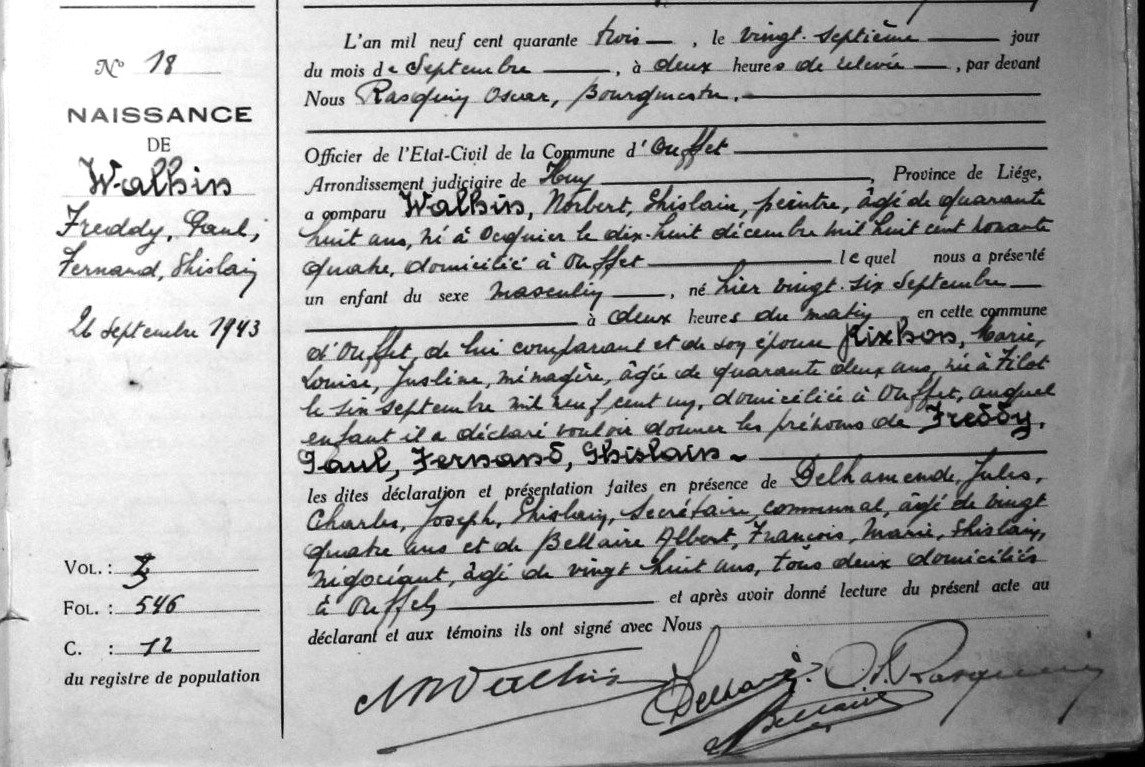 N° 18
NAISSANCE
DE
Walhin
Freddy, Paul,
Fernand, Ghislain
26 Septembre 1943
VOL. :
FOL. : 546
C. : 12
du registre de population
L'an mil neuf cent quarante trois, le vingt-septième jour
du mois de Septembre, à deux heures de relevée, par devant
Nous Rasquin Oscar, Bourgmestre.
Officier de l'Etat-Civil de la Commune d'Ouffet
Arrondissement judiciaire de Huy, Province de Liége,
a comparu Walhin, Norbert, Ghislain, peintre, âgé de quarante
huit ans, né à Ocquier le dix-huit décembre mil huit cent nonante
quatre, domicilié à Ouffet lequel nous a présenté
un enfant du sexe masculin, né hier vingt-six Septembre
à deux heures du matin, en cette commune
d'Ouffet, de lui comparant et de son épouse Rixhon, Marie,
Louise, Justine, ménagère, âgée de quarante deux ans, née à Filot
le six septembre mil neuf cent un, domiciliée à Ouffet, auquel
enfant il a déclaré vouloir donner les prénoms de Freddy,
Paul, Fernand, Ghislain.
les dites déclaration et présentation faites en présence de Delhamende, Jules,
Charles, Joseph, Ghislain, Secrétaire communal, âgé de vingt
quatre ans et de Bellaire Albert, François, Marie, Ghislain,
négociant, âgé de vingt huit ans, tous deux domiciliés
à Ouffet et après avoir donné lecture du présent acte au
déclarant et aux témoins ils ont signé avec Nous
N Walhin
O. Rasquin
Bellaire